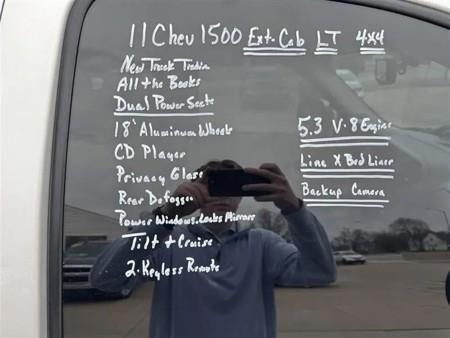 11 Chev 1500 Ext-Cab LT 4x4
New Truck Tradin
All the Books
Dual Power Seats
18" Aluminum Wheels
CD Player
Privacy Glass
Rear Defogger
Power Windows, Locks Mirrors
Tilt + Cruise
2-Keyless Remote
5.3 V-8 Engine
Line X Bed Liner
Backup Camera